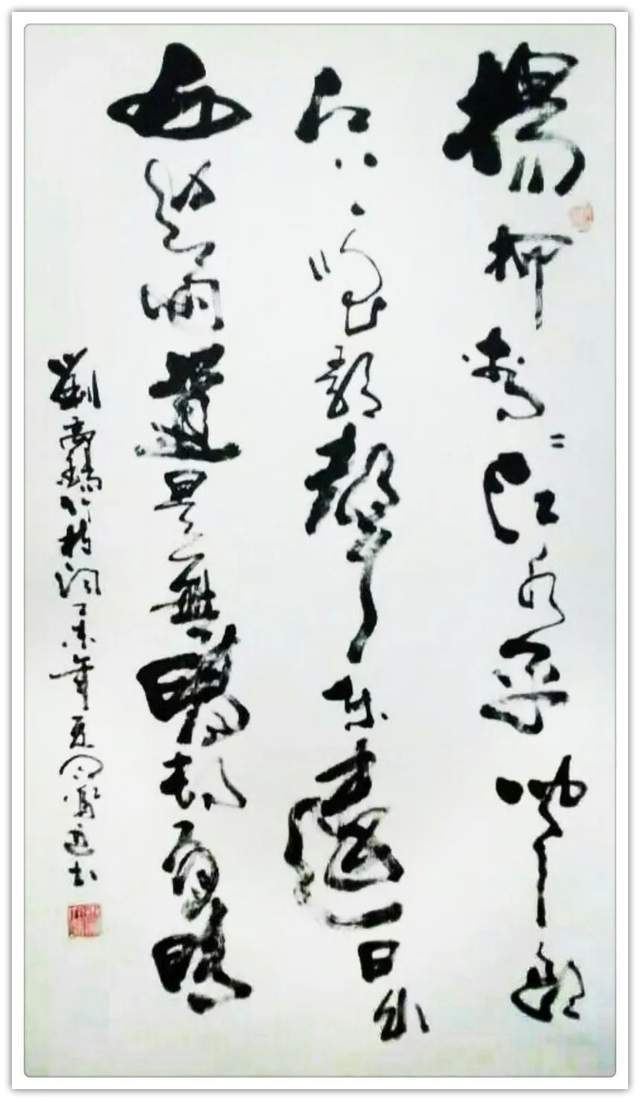 楊柳青〻江水平聞郎
江上唱歌聲東邊日出
西邊雨道是無晴却有晴
劉禹錫竹枝詞乙未年夏書